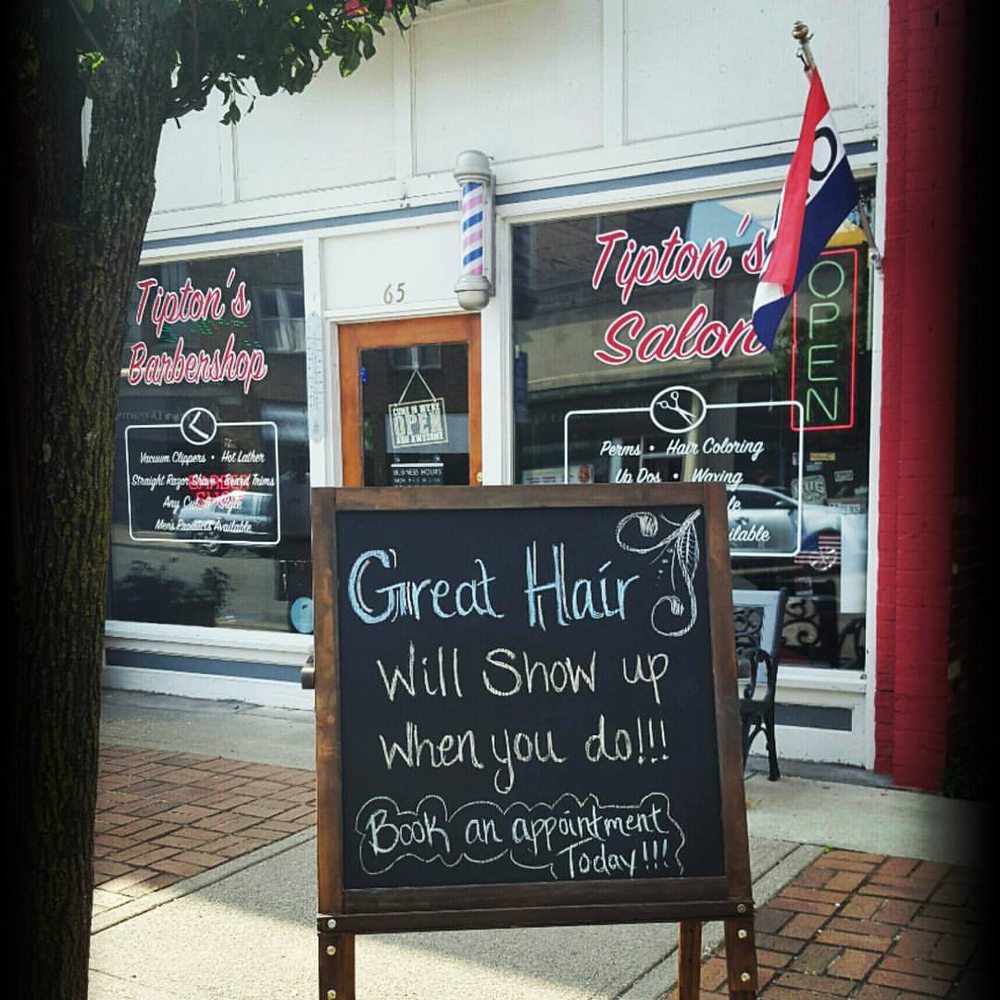 Tipton's
Barbershop
Vacuum Clippers • Hot Lather
Straight Razor Shave • Beard Trims
Any Style
Men's Products Available
65
COME IN WE'RE
OPEN
AND AWESOME
BUSINESS HOURS
Tipton's
Salon
Perms • Hair Coloring
Up Dos • Waxing
O
OPEN
Great Hair
Will Show up
When you do!!!
Book an appointment
Today!!!